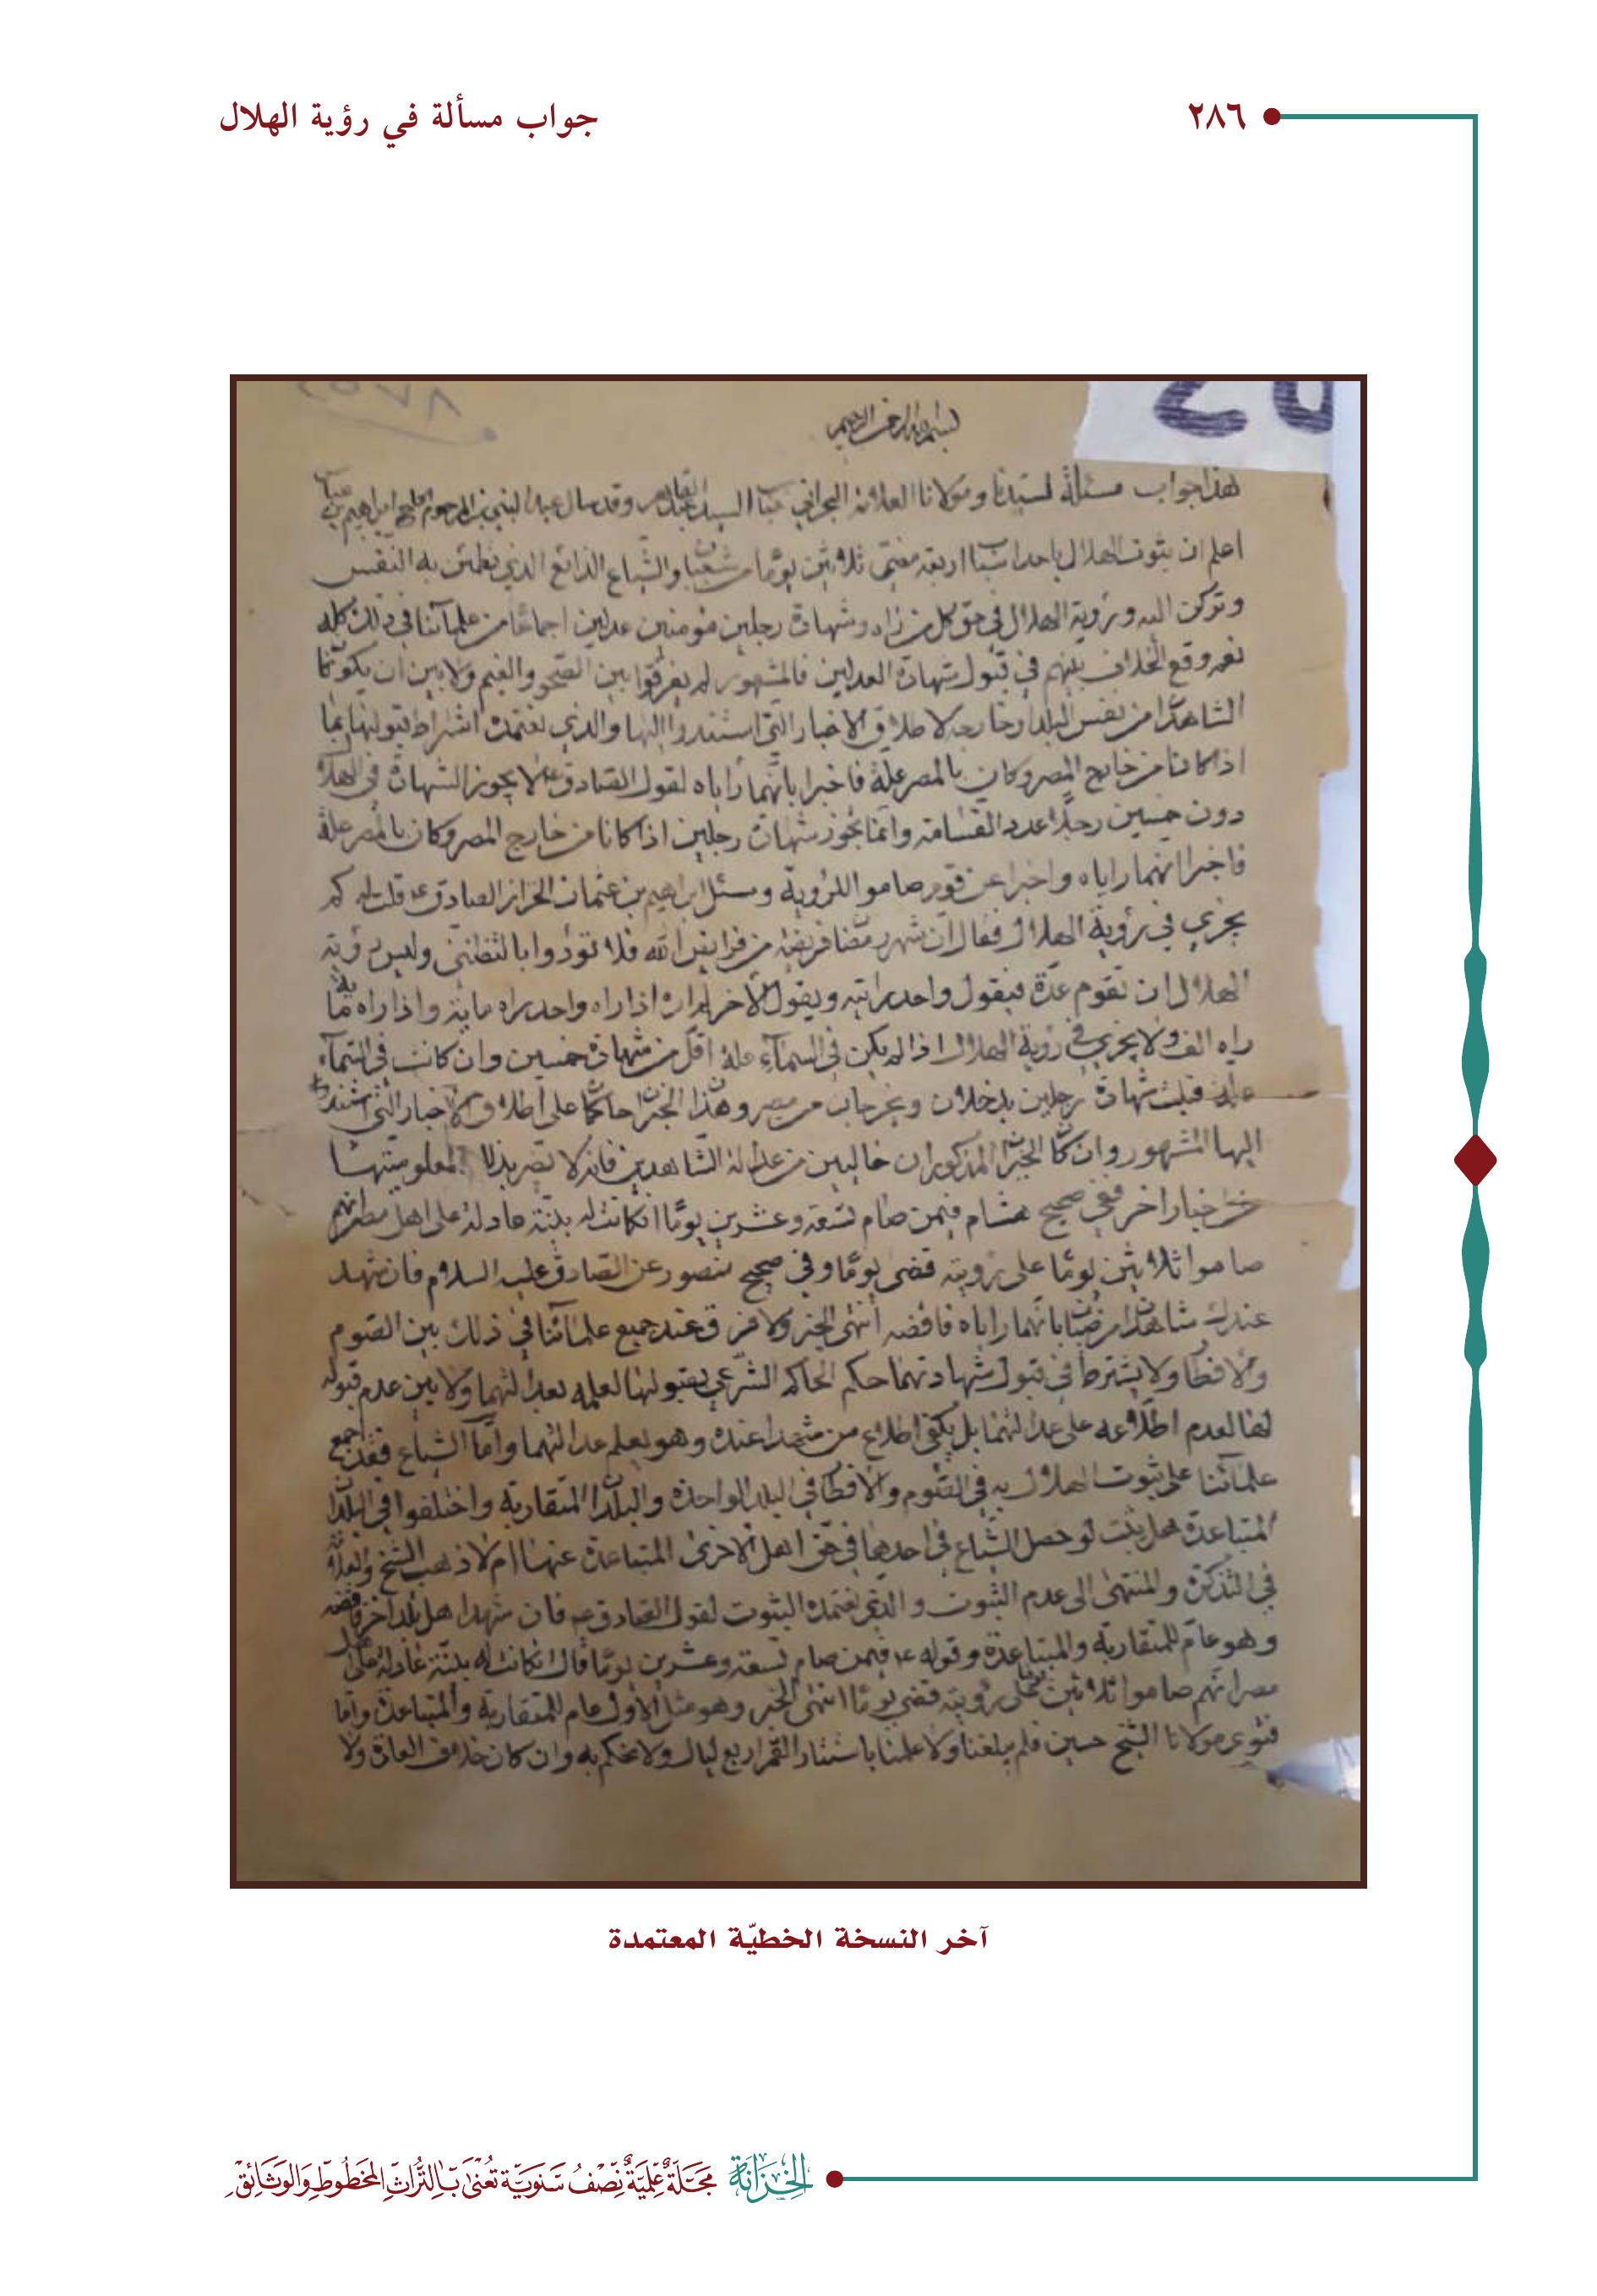 ٢٨٦
جواب مسألة في رؤية الهلال
بسم الله الرحمن الرحيم
هذا جواب مسئلة لسيدنا ومولانا العلامة البحراني السيد وقد سال عبد النبي بن المرحوم الحاج ابراهيم
اعلم ان ثبوت الهلال باحد اسباب اربعة مضى ثلاثين يوما من شعبان والشياع الذائع الذي تطمئن به النفس
وتركن اليه ورؤية الهلال في حق كل من راه وشهادة رجلين مؤمنين عدلين اجماعا من علمائنا في ذلك كله
نعم وقع الخلاف بينهم في قبول شهادة العدلين فالمشهور لم يفرقوا بين الصحو والغيم ولا بين ان يكونا
الشاهدان من نفس البلد او خارجه لاطلاق الاخبار التي استندوا اليها والذي نعتمده اشتراط قبولها بما
اذا كانا من خارج المصر وكان بالمصر علة فاخبرا بانهما راياه لقول الصادق ع لا يجوز الشهادة في الهلال
دون خمسين رجلا عدد القسامة وانما تجوز شهادة رجلين اذا كانا من خارج المصر وكان بالمصر علة
فاخبرا انهما راياه واخبرا عن قوم صاموا للرؤية وسئل ابراهيم بن عثمان الخزاز الصادق ع قلت له كم
يجزي في رؤية الهلال فقال ان شهر رمضان فريضة من فرايض الله فلا تؤدوا بالتظنني وليس رؤية
الهلال ان تقوم عدة فيقول واحد رايته ويقول الاخر لم اره اذا راه واحد راه ماية واذا راه ماية
راه الف ولا يجزي في رؤية الهلال اذا لم يكن في السماء علة اقل من شهادة خمسين وان كانت في السماء
علة قبلت شهادة رجلين يدخلان ويخرجان من مصر وهذان الخبران حاكمان على اطلاق الاخبار التي استند
اليها المشهور وان كان الخبران المذكوران خاليين من عدالة الشاهدين فانه لا يضر بذلك لمعلوميتها
من اخبار اخر ففي صحيح هشام فيمن صام تسعة وعشرين يوما ان كانت له بينة عادلة على اهل مصر انهم
صاموا ثلاثين يوما على رؤيته قضى يوما وفي صحيح منصور عن الصادق عليه السلام فان شهد
عندك شاهدان مرضيان بانهما راياه فاقضه انتهى الخبر ولا فرق عند جميع علمائنا في ذلك بين الصوم
والافطار ولا يشترط في قبول شهادتهما حكم الحاكم الشرعي بقبولها لعلمه بعدالتهما ولا بين عدم قبوله
لها لعدم اطلاعه على عدالتهما بل يكفي اطلاع من شهدا عنده وهو يعلم عدالتهما واما الشياع فقد اجمع
علمائنا على ثبوت الهلال به في الصوم والافطار في البلد الواحدة والبلدان المتقاربة واختلفوا في البلدان
المتباعدة هل يثبت لو حصل الشياع في احديها في حق اهل الاخرى المتباعدة عنها ام لا ذهب الشيخ والعلامة
في التذكرة والمنتهى الى عدم الثبوت والذي نعتمده الثبوت لقول الصادق ع فان شهد اهل بلد اخر فاقضه
وهو عام للمتقاربة والمتباعدة وقوله ع فيمن صام تسعة وعشرين يوما قال ان كانت له بينة عادلة على اهل
مصر انهم صاموا ثلاثين على رؤيته قضى يوما انتهى الخبر وهو مثل الاول عام للمتقاربة والمتباعدة واما
فتوى مولانا الشيخ حسين فلم يبلغنا ولا علمنا باستتار القمر اربع ليال ولا نحكم به وان كان خلاف العادة ولا
آخر النسخة الخطيّة المعتمدة
الخِزانة مَجَلّةٌ عِلميّةٌ نِصْفُ سَنَويّة تُعْنى بِالتُّراثِ المَخطُوطِ وَالوَثائِق